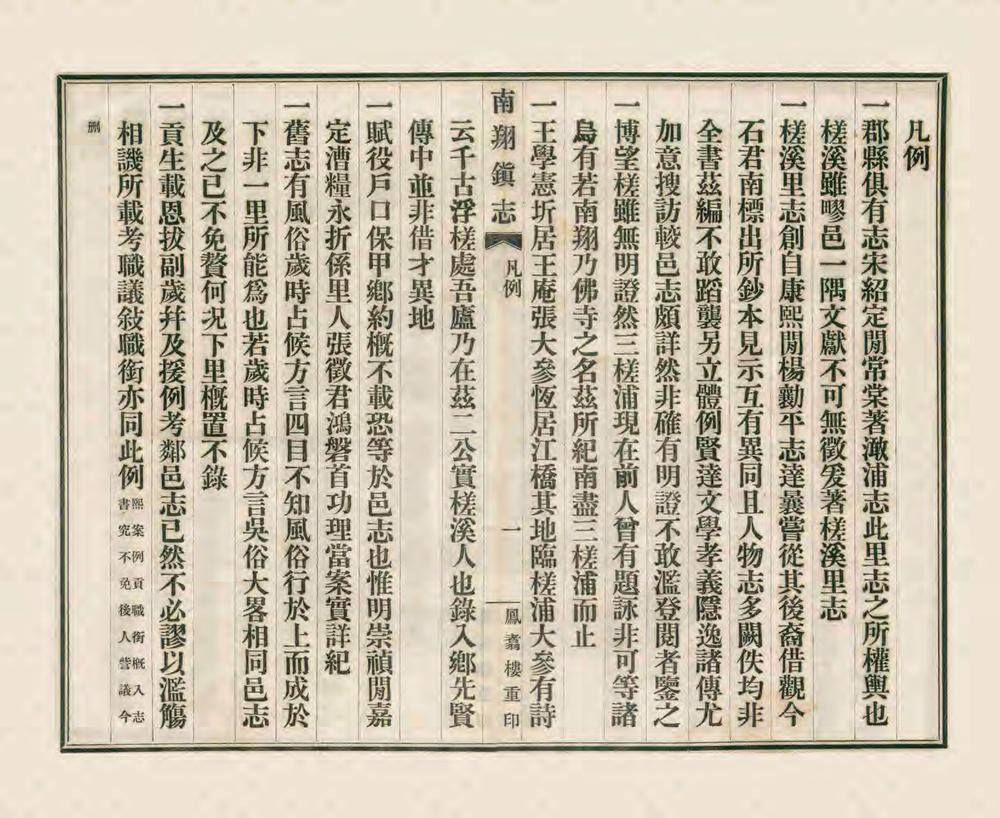 凡例
一郡縣俱有志宋紹定閒常棠著澉浦志此里志之所權輿也
槎溪雖嘐邑一隅文獻不可無徵爰著槎溪里志
一槎溪里志創自康熙閒楊勷平志達曩嘗從其後裔借觀今
石君南標出所鈔本見示互有異同且人物志多闕佚均非
全書茲編不敢蹈襲另立體例賢達文學孝義隱逸諸傳尤
加意搜訪較邑志頗詳然非確有明證不敢濫登閱者鑒之
一博望槎雖無明證然三槎浦現在前人曾有題詠非可等諸
烏有若南翔乃佛寺之名茲所紀南盡三槎浦而止
一王學憲圻居王庵張大參恆居江橋其地臨槎浦大參有詩
南翔鎮志 凡例 一 鳳翥樓重印
云千古浮槎處吾廬乃在茲二公實槎溪人也錄入鄉先賢
傳中並非借才異地
一賦役戶口保甲鄉約槪不載恐等於邑志也惟明崇禎閒嘉
定漕糧永折係里人張徵君鴻磐首功理當案實詳紀
一舊志有風俗歲時占候方言四目不知風俗行於上而成於
下非一里所能爲也若歲時占候方言吳俗大畧相同邑志
及之已不免贅何况下里槪置不錄
一貢生載恩拔副歲幷及援例考鄰邑志已然不必謬以濫觴
相譏所載考職議敍職銜亦同此例熙案例貢職銜槪入志
書究不免後人訾議今
刪